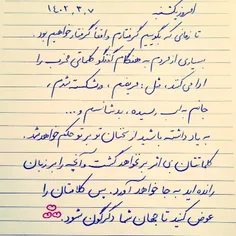 امروز یکشنبه ۱۴۰۲,۳,۷
تا زمانی که بگوییم گرفتارم واقعاً گرفتار خواهیم بود.
بسیاری از مردم به هنگام گفتگو کلماتی مخرب را
ادا می‌کنند، مثل: فریفتم، ورشکسته شدم،
جانم به لب رسیده، بدشانسم و...
به یاد داشته باشید از سخنان تو بر تو حکم خواهد شد.
کلماتتان بی اثر برنخواهد گشت و آنچه را بر زبان
رانده اید به جا خواهد آورد. پس کلامتان را
عوض کنید تا جهان شما دگرگون شود.